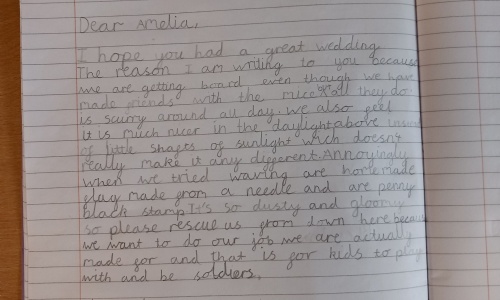 Dear Amelia,
I hope you had a great wedding.
The reason I am writing to you because
we are getting board even though we have
made friends with the mice all they do
is scurry around all day. We also feel
it is much nicer in the daylight above
of little shapes of sunlight wich doesn't
really make it any different. Annoyingly
when we tried waving are homemade
flag made from a needle and are penny
black stamp. It's so dusty and gloomy
so please rescue us from down here because
we want to do our job we are actually
made for and that is for kids to play
with and be soldiers.